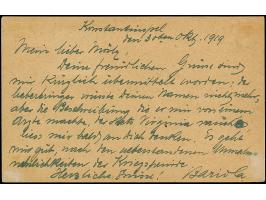 Konstantinopel
den 30ten Okt. 1919
Mein lieber Molz
Deine freundlichen Grüsse sind
mir kürzlich übermittelt worden, der
Ueberbringer wusste deinen Namen nicht mehr,
aber die Beschreibung die er mir von einem
Arzte machte, der Virginia raucht
lies mir bald an dich denken. Es geht
mir gut, nach den ueberstandenen
der Kriegsfreunde
Herzliche Grüsse!